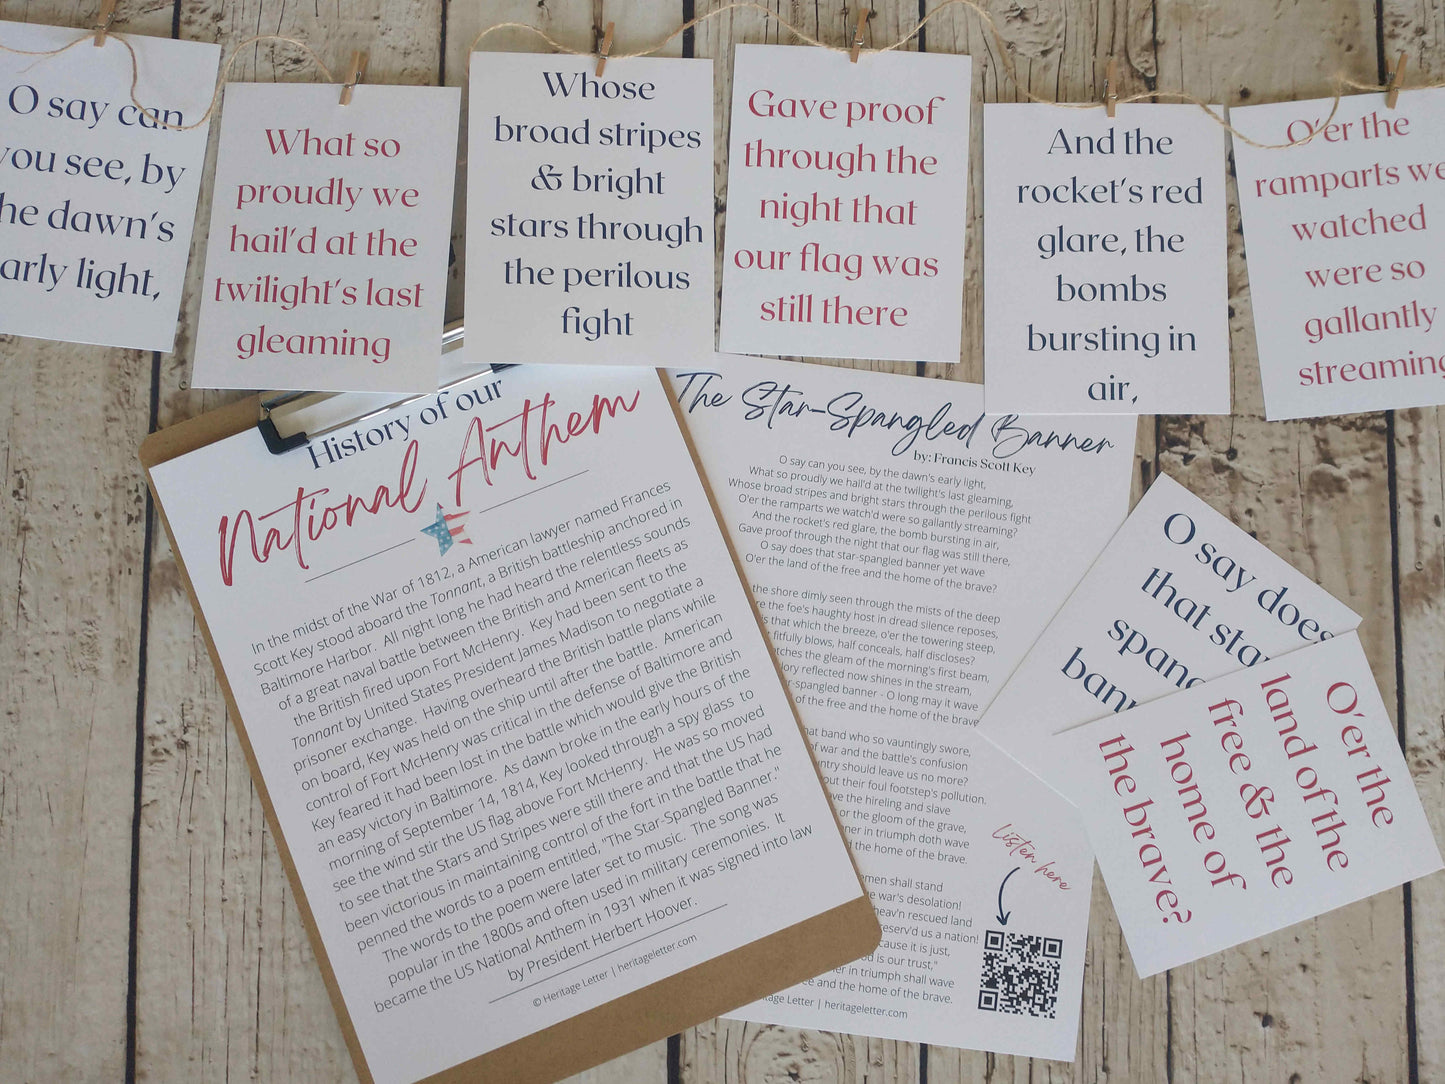 O say can
you see, by
the dawn's
early light,
What so
proudly we
hail'd at the
twilight's last
gleaming
Whose
broad stripes
& bright
stars through
the perilous
fight
Gave proof
through the
night that
our flag was
still there
And the
rocket's red
glare, the
bombs
bursting in
air,
O'er the
ramparts we
watched
were so
gallantly
streaming
History of our
National Anthem
In the midst of the War of 1812, a American lawyer named Frances
Scott Key stood aboard the Tonnant, a British battleship anchored in
Baltimore Harbor. All night long he had heard the relentless sounds
of a great naval battle between the British and American fleets as
the British fired upon Fort McHenry. Key had been sent to the
Tonnant by United States President James Madison to negotiate a
prisoner exchange. Having overheard the British battle plans while
on board, Key was held on the ship until after the battle. American
control of Fort McHenry was critical in the defense of Baltimore and
Key feared it had been lost in the battle which would give the British
an easy victory in Baltimore. As dawn broke in the early hours of the
morning of September 14, 1814, Key looked through a spy glass to
see the wind stir the US flag above Fort McHenry. He was so moved
to see that the Stars and Stripes were still there and that the US had
been victorious in maintaining control of the fort in the battle that he
penned the words to a poem entitled, "The Star-Spangled Banner."
The words to the poem were later set to music. The song was
popular in the 1800s and often used in military ceremonies. It
became the US National Anthem in 1931 when it was signed into law
by President Herbert Hoover.
© Heritage Letter | heritageletter.com
The Star-Spangled Banner
by: Francis Scott Key
O say can you see, by the dawn's early light,
What so proudly we hail'd at the twilight's last gleaming,
Whose broad stripes and bright stars through the perilous fight
O'er the ramparts we watch'd were so gallantly streaming?
And the rocket's red glare, the bomb bursting in air,
Gave proof through the night that our flag was still there,
O say does that star-spangled banner yet wave
O'er the land of the free and the home of the brave?
the shore dimly seen through the mists of the deep
re the foe's haughty host in dread silence reposes,
is that which the breeze, o'er the towering steep,
fitfully blows, half conceals, half discloses?
atches the gleam of the morning's first beam,
lory reflected now shines in the stream,
r-spangled banner - O long may it wave
of the free and the home of the brave
hat band who so vauntingly swore,
of war and the battle's confusion
untry should leave us no more?
out their foul footstep's pollution.
ve the hireling and slave
or the gloom of the grave,
ner in triumph doth wave
d the home of the brave.
emen shall stand
e war's desolation!
heav'n rescued land
reserv'd us a nation!
cause it is just,
d is our trust,"
er in triumph shall wave
ee and the home of the brave.
tage Letter | heritageletter.com
listen here
O say does
that sta
spang
bann
O'er the
land of the
free & the
home of
the brave?